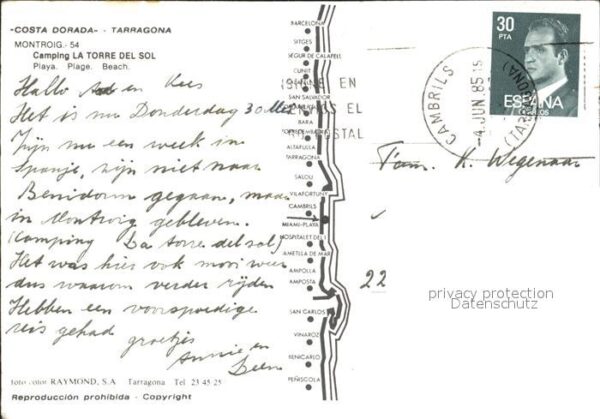 -COSTA DORADA- - TARRAGONA
MONTROIG.- 54
Camping LA TORRE DEL SOL
Playa. Plage. Beach.
Hallo en Kees
Het is nu Donderdag 30 Mei
Zijn nu een week in
Spanje, zijn niet naar
Benidorm gegaan, maar
in Montroig gebleven.
(Camping La torre del sol)
Het was hier ook mooi weer
dus waarom verder rijden
Hebben een voorspoedige
reis gehad
groetjes
Annie en
foto color RAYMOND, S.A Tarragona Tel 23 45 25
Reproducción prohibida - Copyright
BARCELONA
SITGES
SEGUR DE CALAFELL
CUNIT
SAN SALVADOR
BARA
ALTAFULLA
TARRAGONA
SALOU
VILAFORTUNY
CAMBRILS
MIAMI-PLAYA
HOSPITALET DEL I.
AMETLLA DE MAR
AMPOLLA
AMPOSTA
SAN CARLOS
VINAROZ
BENICARLO
PEÑISCOLA
EN
EL
POSTAL
CAMBRILS
(TARRAGONA)
-4 JUN. 85
30
PTA
ESPAÑA
Fam. K. Wegenaar
22
privacy protection
Datenschutz